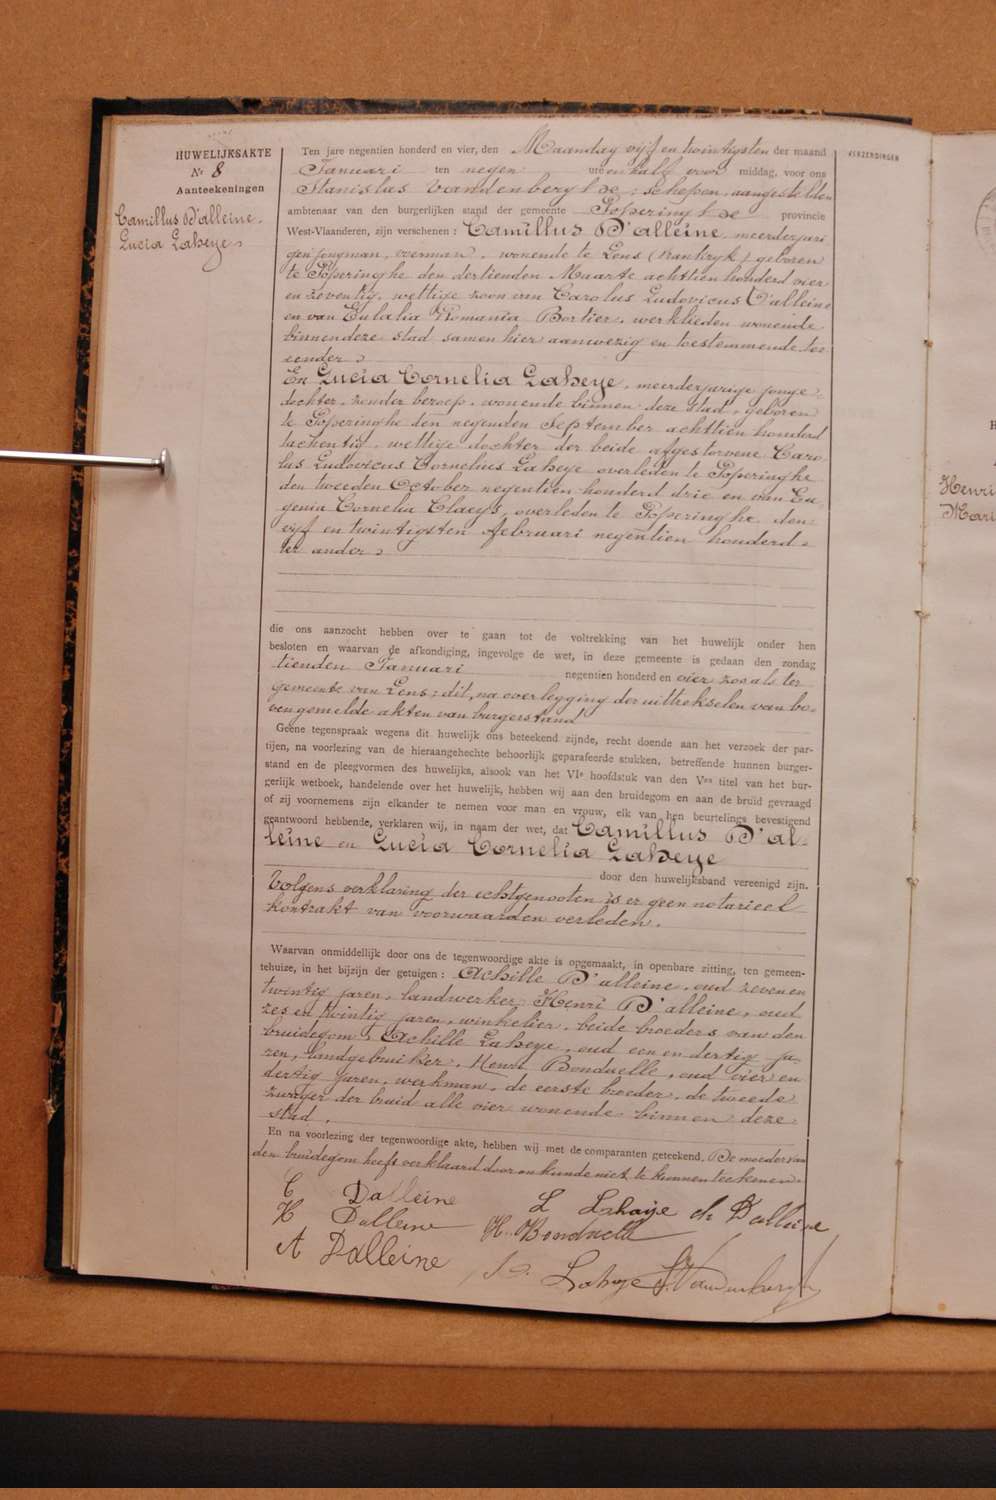 HUWELIJKSAKTE
Nr 8
Aanteekeningen
Camillus D'alleine.
Lucia Laheye
Ten jare negentien honderd en vier, den Maandag vijf en twintigsten der maand
Januari ten negen ure en half voor middag, voor ons
Stanislas Vandenberghe, Schepen, aangestelden
ambtenaar van den burgerlijken stand der gemeente Poperinghe provincie
West-Vlaanderen, zijn verschenen : Camillus D'alleine, meerderjari
gen jongman, voerman, wonende te Lens (Frankryk) geboren
te Poperinghe den dertienden Maarte achttien honderd vier
en zeventig, wettige zoon van Carolus Ludovicus D'alleine
en van Eulalia Romania Bortier, werklieden wonende
binnen deze stad samen hier aanwezig en toestemmende ten
eender
En Lucia Cornelia Laheye, meerderjarige jonge
dochter, zonder beroep, wonende binnen deze stad, geboren
te Poperinghe den negenden September achttien honderd
tachentig, wettige dochter der beide afgestorvene Caro-
lus Ludovicus Cornelius Laheye overleden te Poperinghe
den tweeden October negentien honderd drie en van Eu-
genia Cornelia Claeys, overleden te Poperinghe den
vijf en twintigsten februari negentien honderd
ter ander
die ons aanzocht hebben over te gaan tot de voltrekking van het huwelijk onder hen
besloten en waarvan de afkondiging, ingevolge de wet, in deze gemeente is gedaan den zondag
tienden Januari negentien honderd en vier zooals ter
gemeente van Lens; dit, na overlegging der uittrekselen van bo-
vengemelde akten van burgerstand
Geene tegenspraak wegens dit huwelijk ons beteekend zijnde, recht doende aan het verzoek der par-
tijen, na voorlezing van de hieraangehechte behoorlijk geparafeerde stukken, betreffende hunnen burger-
stand en de pleegvormen des huwelijks, alsook van het VIe hoofdstuk van den Ven titel van het bur-
gerlijk wetboek, handelende over het huwelijk, hebben wij aan den bruidegom en aan de bruid gevraagd
of zij voornemens zijn elkander te nemen voor man en vrouw, elk van hen beurtelings bevestigend
geantwoord hebbende, verklaren wij, in naam der wet, dat Camillus D'al-
leine en Lucia Cornelia Laheye
door den huwelijksband vereenigd zijn.
Volgens verklaring der echtgenooten is er geen notarieel
kontrakt van voorwaarden verleden.
Waarvan onmiddellijk door ons de tegenwoordige akte is opgemaakt, in openbare zitting, ten gemeen-
tehuize, in het bijzijn der getuigen : Achille D'alleine, oud zeven en
twintig jaren, landwerker, Henri D'alleine, oud
zes en twintig jaren, winkelier, beide broeders van den
bruidegom, Achille Laheye, oud een en dertig ja-
ren, landgebruiker, Henri Bonduelle, oud vier en
dertig jaren, werkman, de eerste broeder, de tweede
zwager der bruid alle vier wonende binnen deze
stad.
En na voorlezing der tegenwoordige akte, hebben wij met de comparanten geteekend. De moeder van
den bruidegom heeft verklaard door onkunde niet te kunnen teekenen.
C Dalleine L Lahaije ch Dalleine
H Dalleine H. Bonduelle
A Dalleine Laheye S. Vandenberghe
VERZENDINGEN
H
Henri
Mari